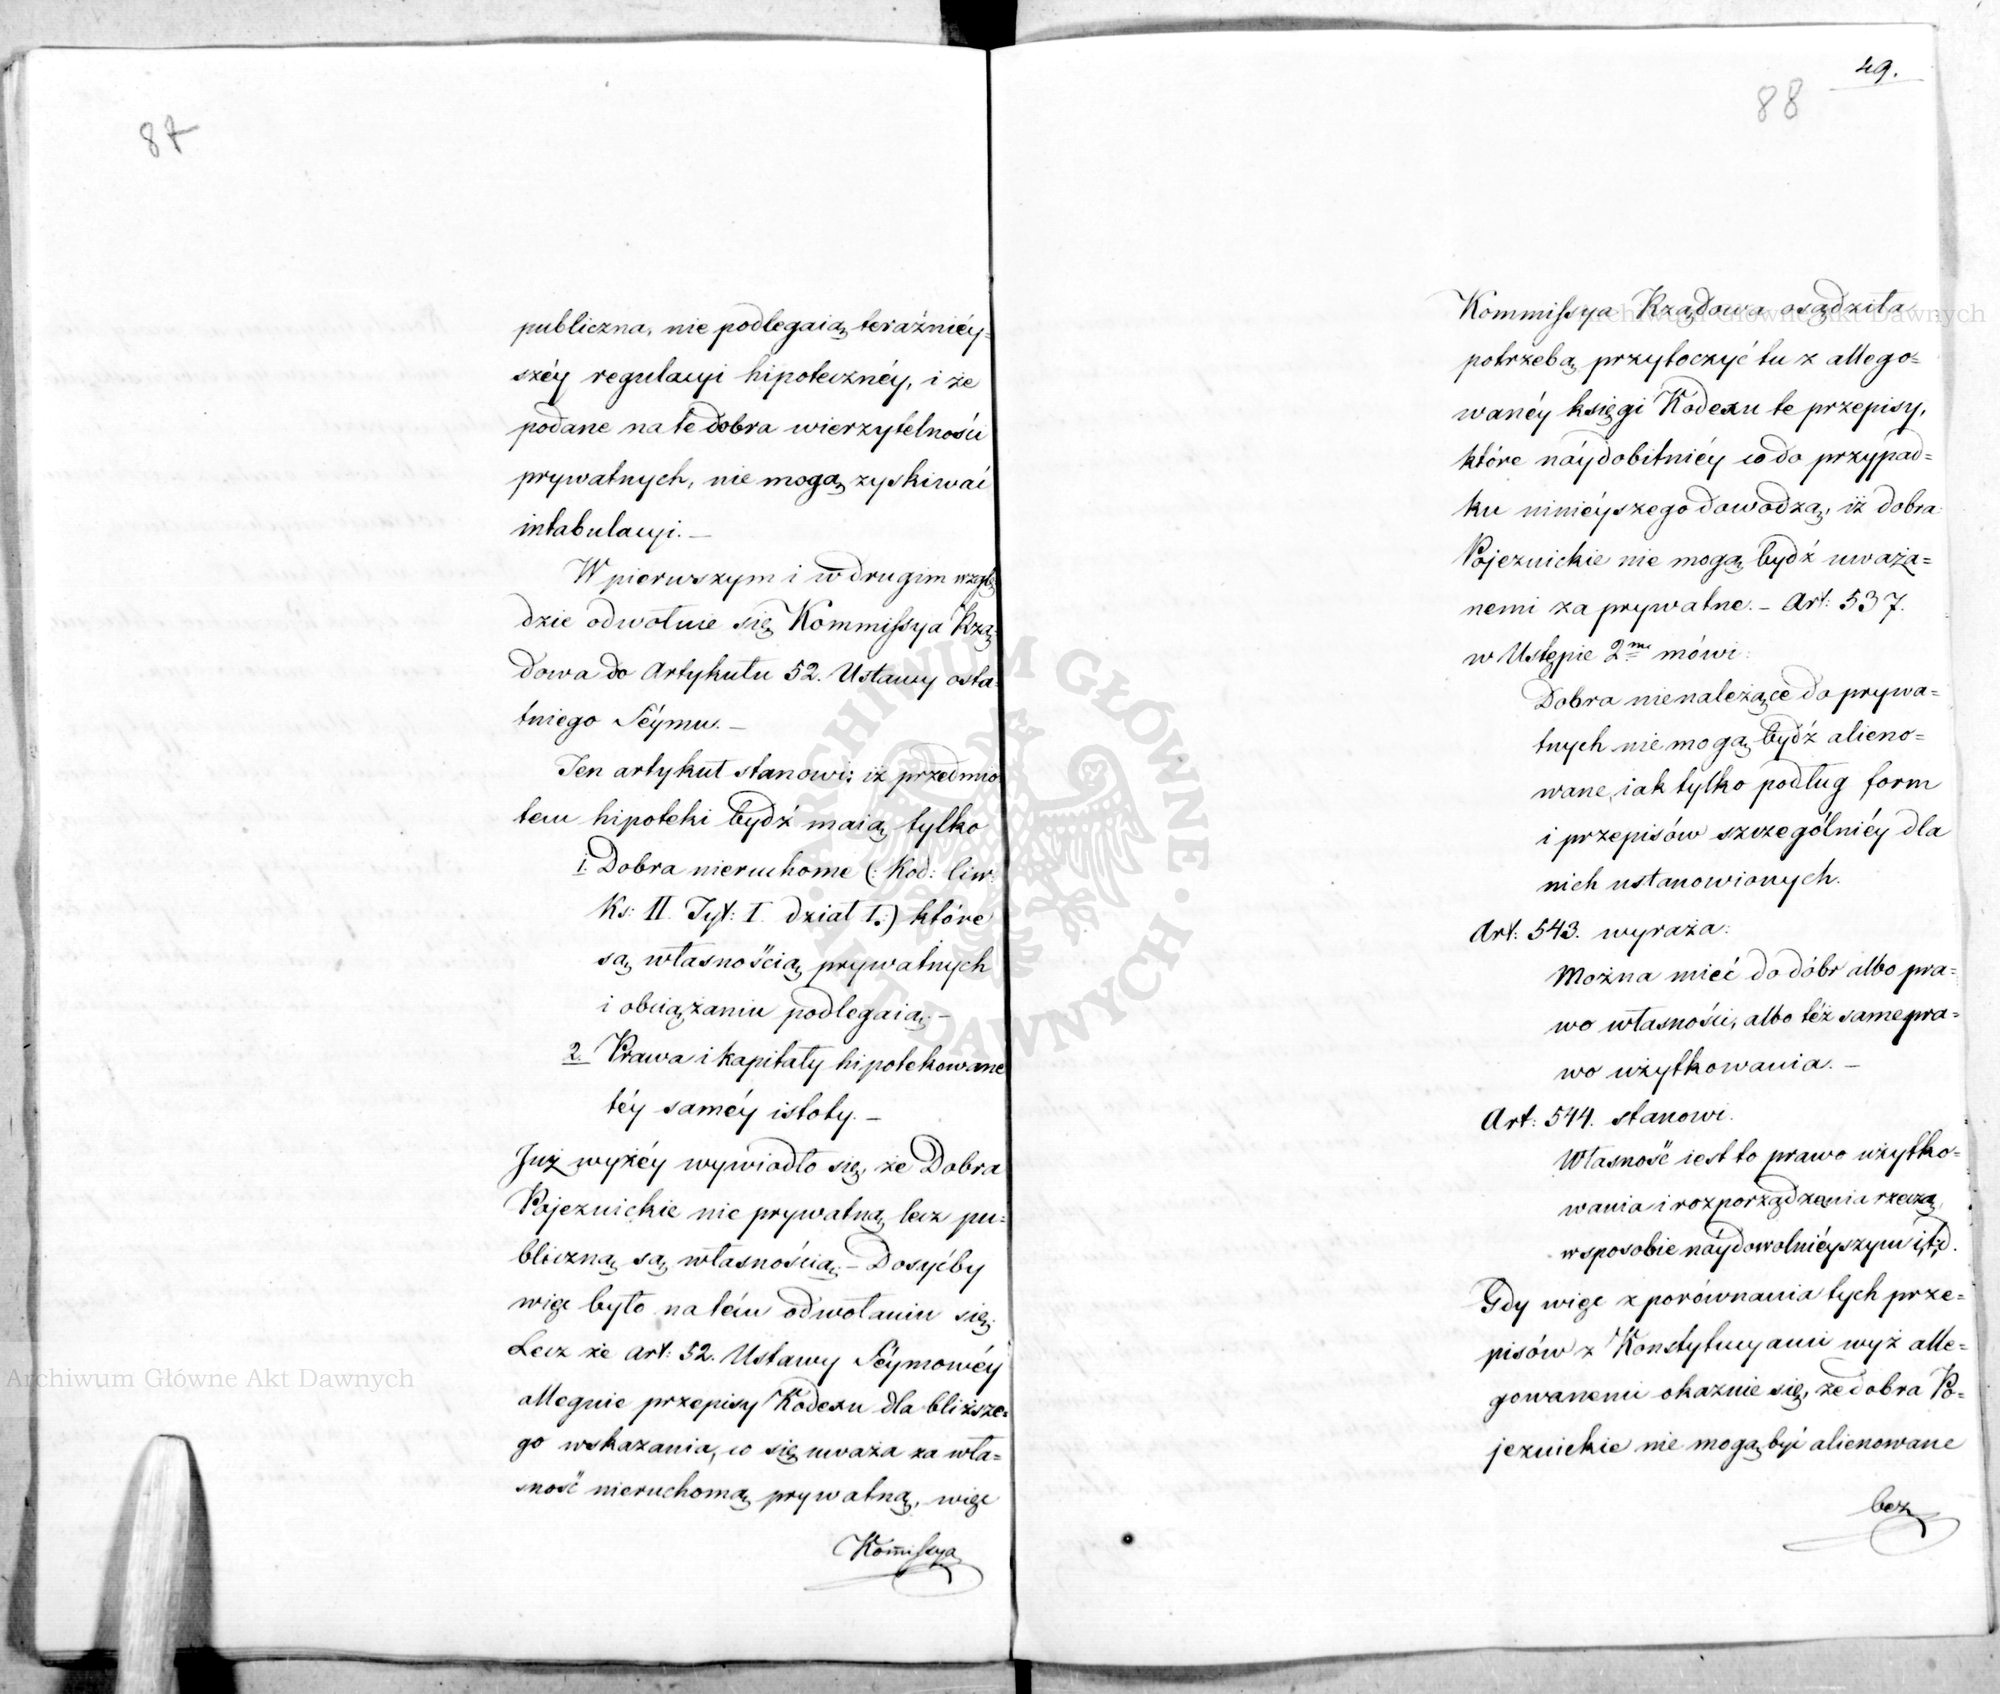 87
publiczna, nie podlegaią teraźniéy-
széy regulacyi hipoteczńéy, i że
podane na te dobra wierzytelności
prywatnych, nie mogą zyskiwać
intabulacyi. —
W pierwszym i w drugim wzglę-
dzie odwołuie się Kommissya Rzą-
dowa do Artykułu 52. Ustawy osta-
tniego Séymu. —
Ten artykuł stanowi; iż przedmio
tem hipoteki bydź maią tylko
1. Dobra nieruchome (: Kod: Ciw:
Ks: II. Tyt: I. dział I.:) które
są własnością prywatnych
i obciążaniu podlegaią. —
2. Prawa i kapitały hipotekowane
téy saméy istoty. —
Już wyżéy wywiodło się, że Dobra
Pojezuickie nie prywatną lecz pu-
bliczną są własnością. — Dosyćby
więc było na tém odwołaniu się.
Lecz że art: 52. Ustawy Séymowéy
alleguie przepisy Kodexu dla bliższe-
go wskazania, co się uważa za wła-
sność nieruchomą prywatną, więc
Kom̄issya
49.
88
Kommissya Rządowa osądziła
potrzebą przytoczyć tu z allego-
wanéy księgi Kodexu te przepisy,
które náydobitniéy co do przypad-
ku niniéyszego dowodzą, iż dobra
Pojezuickie nie mogą bydź uważa-
nemi za prywatne. — Art: 537.
w Ustępie 2m mówi:
Dobra nienależące do prywa-
tnych nie mogą bydź alieno-
wane, iak tylko podług form
i przepisów szczególniéy dla
nich ustanowionych.
Art: 543. wyraża:
Można mieć do dóbr albo pra-
wo własności, albo téż same pra-
wo użytkowania. —
Art: 544. stanowi.
Własność iest to prawo użytko-
wania i rozporządzenia rzeczą,
w sposobie náydowolniéyszym i,t,d.
Gdy więc z porównania tych prze-
pisów z Konstytucyami wyż alle-
gowanemi okazuie się, że dobra Po-
jezuickie nie mogą być alienowane
bez
Archiwum Główne Akt Dawnych
Archiwum Główne Akt Dawnych
ARCHIWUM GŁÓWNE AKT DAWNYCH